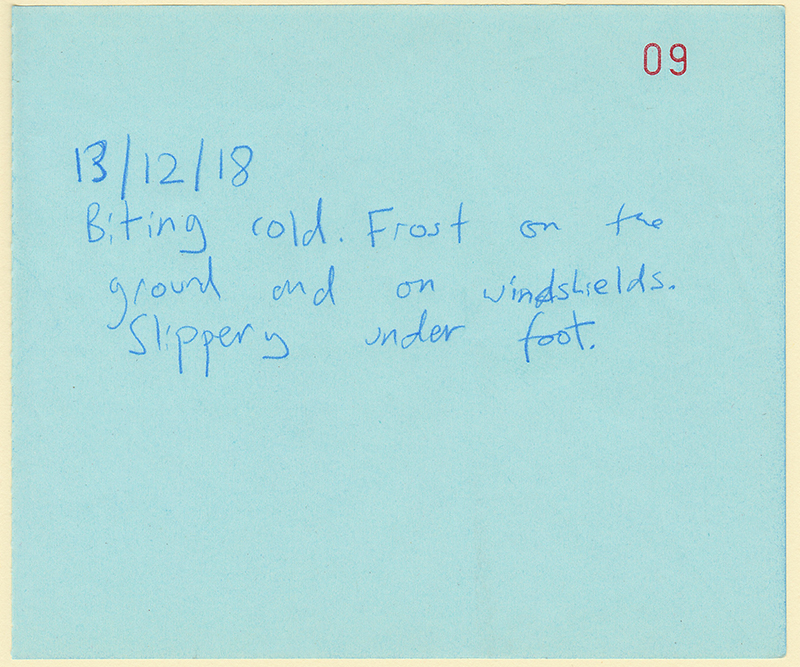 09
13/12/18
Biting cold. Frost on the
ground and on windshields.
Slippery under foot.